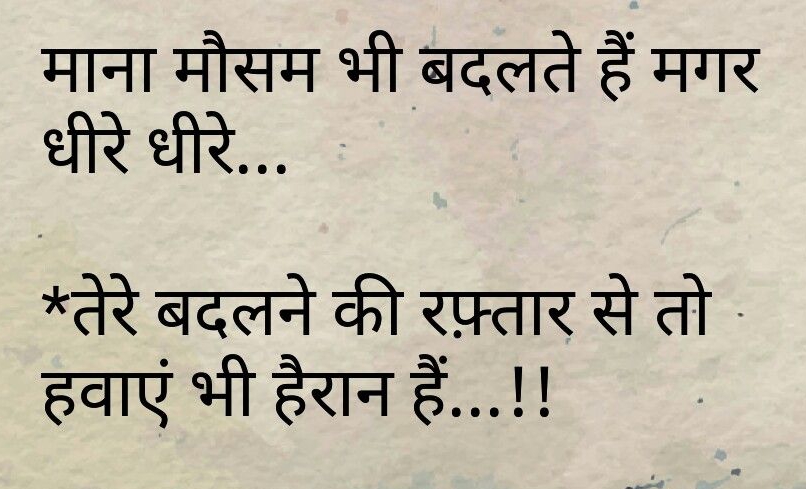 माना मौसम भी बदलते हैं मगर
धीरे धीरे...
*तेरे बदलने की रफ़्तार से तो
हवाएं भी हैरान हैं...!!